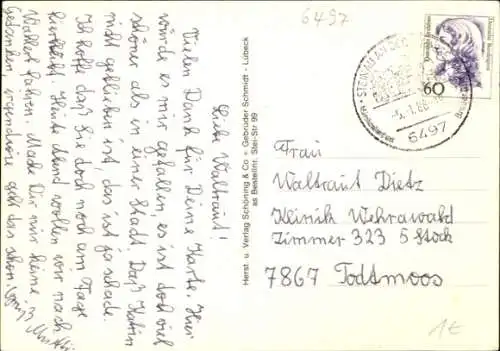 6497
Liebe Waltraut!
Vielen Dank für Deine Karte. Hier
würde es mir gefallen, es ist doch viel
schöner als in einer Stadt. Daß Katrin
nicht geblieben ist, das ist ja schade.
Ich hoffe daß Sie doch noch am Tage
Heute Abend wollen wir nach
fahren. Mache Dir nur keine
Gedanken, irgendwie geht das schon.
Herst. u. Verlag Schöning & Co. + Gebrüder Schmidt - Lübeck
as Bestellnr. Stei-Str 99
Deutsche Bundespost
60
STEINAU AN DER
-5.-1.88
6497
Frau
Waltraut Dietz
Klinik Wehrawald
Zimmer 323 5 Stock
7867 Todtmoos
1€